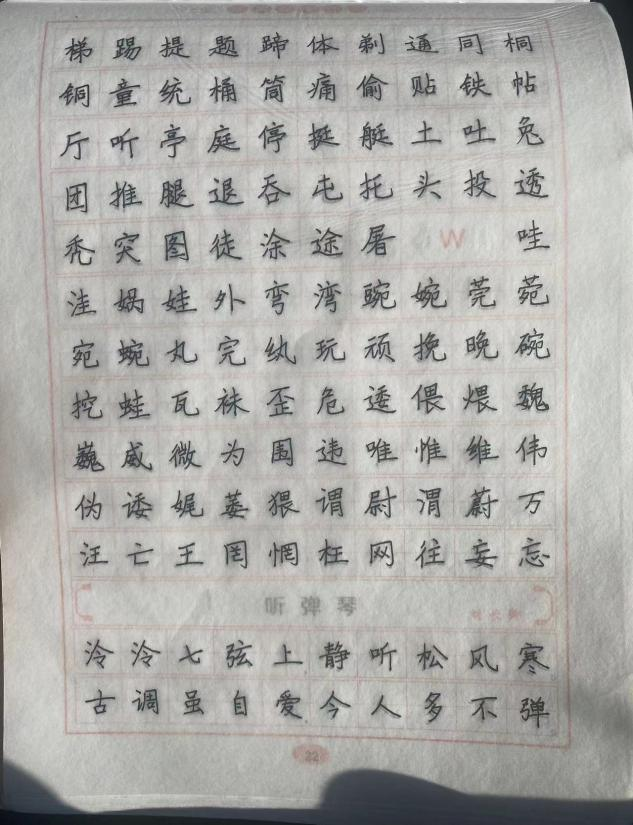 梯踢提题蹄体剃通同桐
铜童统桶筒痛偷贴铁帖
厅听亭庭停挺艇土吐兔
团推腿退吞屯托头投透
秃突图徒涂途屠 W 哇
洼娲娃外弯湾豌婉莞菀
宛蜿丸完纨玩顽挽晚碗
挖蛙瓦袜歪危逶偎煨魏
巍威微为围违唯惟维伟
伪诿娓萎猥谓尉渭蔚万
汪亡王罔惘枉网往妄忘
听弹琴
泠泠七弦上静听松风寒
古调虽自爱今人多不弹
22